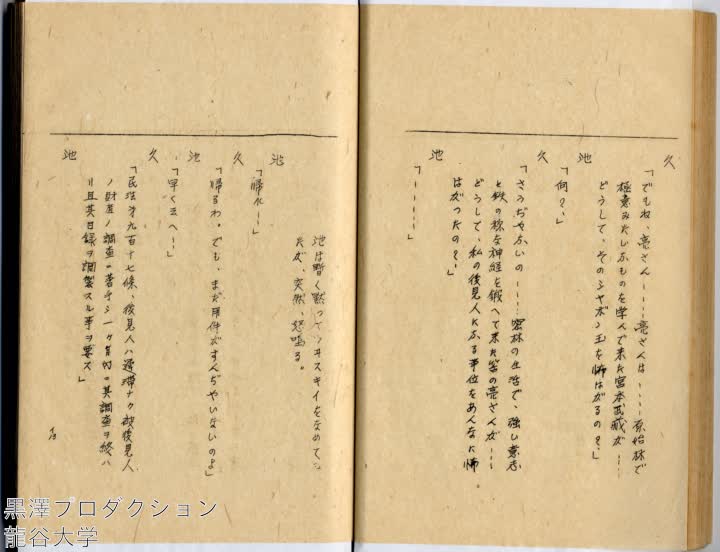 久
「でもね、亮さん……亮さんは……原始林で
極意みたいなものを学んで来た宮本武蔵が……
どうして、そのシャボン玉を怖はがるの？」
池
「何？」
久
「さうぢやないの……密林の生活で、強い意志
と鉄の様な神経を鍛へて来た筈の亮さんが……
どうして、私の後見人になる事位をあんなに怖
はがつたの？」
池
「……」
池は暫く黙つてウヰスキイをなめてゐ
たが、突然、怒鳴る。
池
「帰れ……」
久
「帰るわ。でも、まだ用件がすんぢやいないのよ」
池
「早く云へ……」
久
「民法才九百十七條、後見人ハ遅滞ナク被後見人
ノ財産ノ調査ニ着手シ一ケ月内ニ其調査ヲ終ハ
リ且其目録ヲ調製スル事ヲ要ス」
池
黒澤プロダクション
龍谷大学